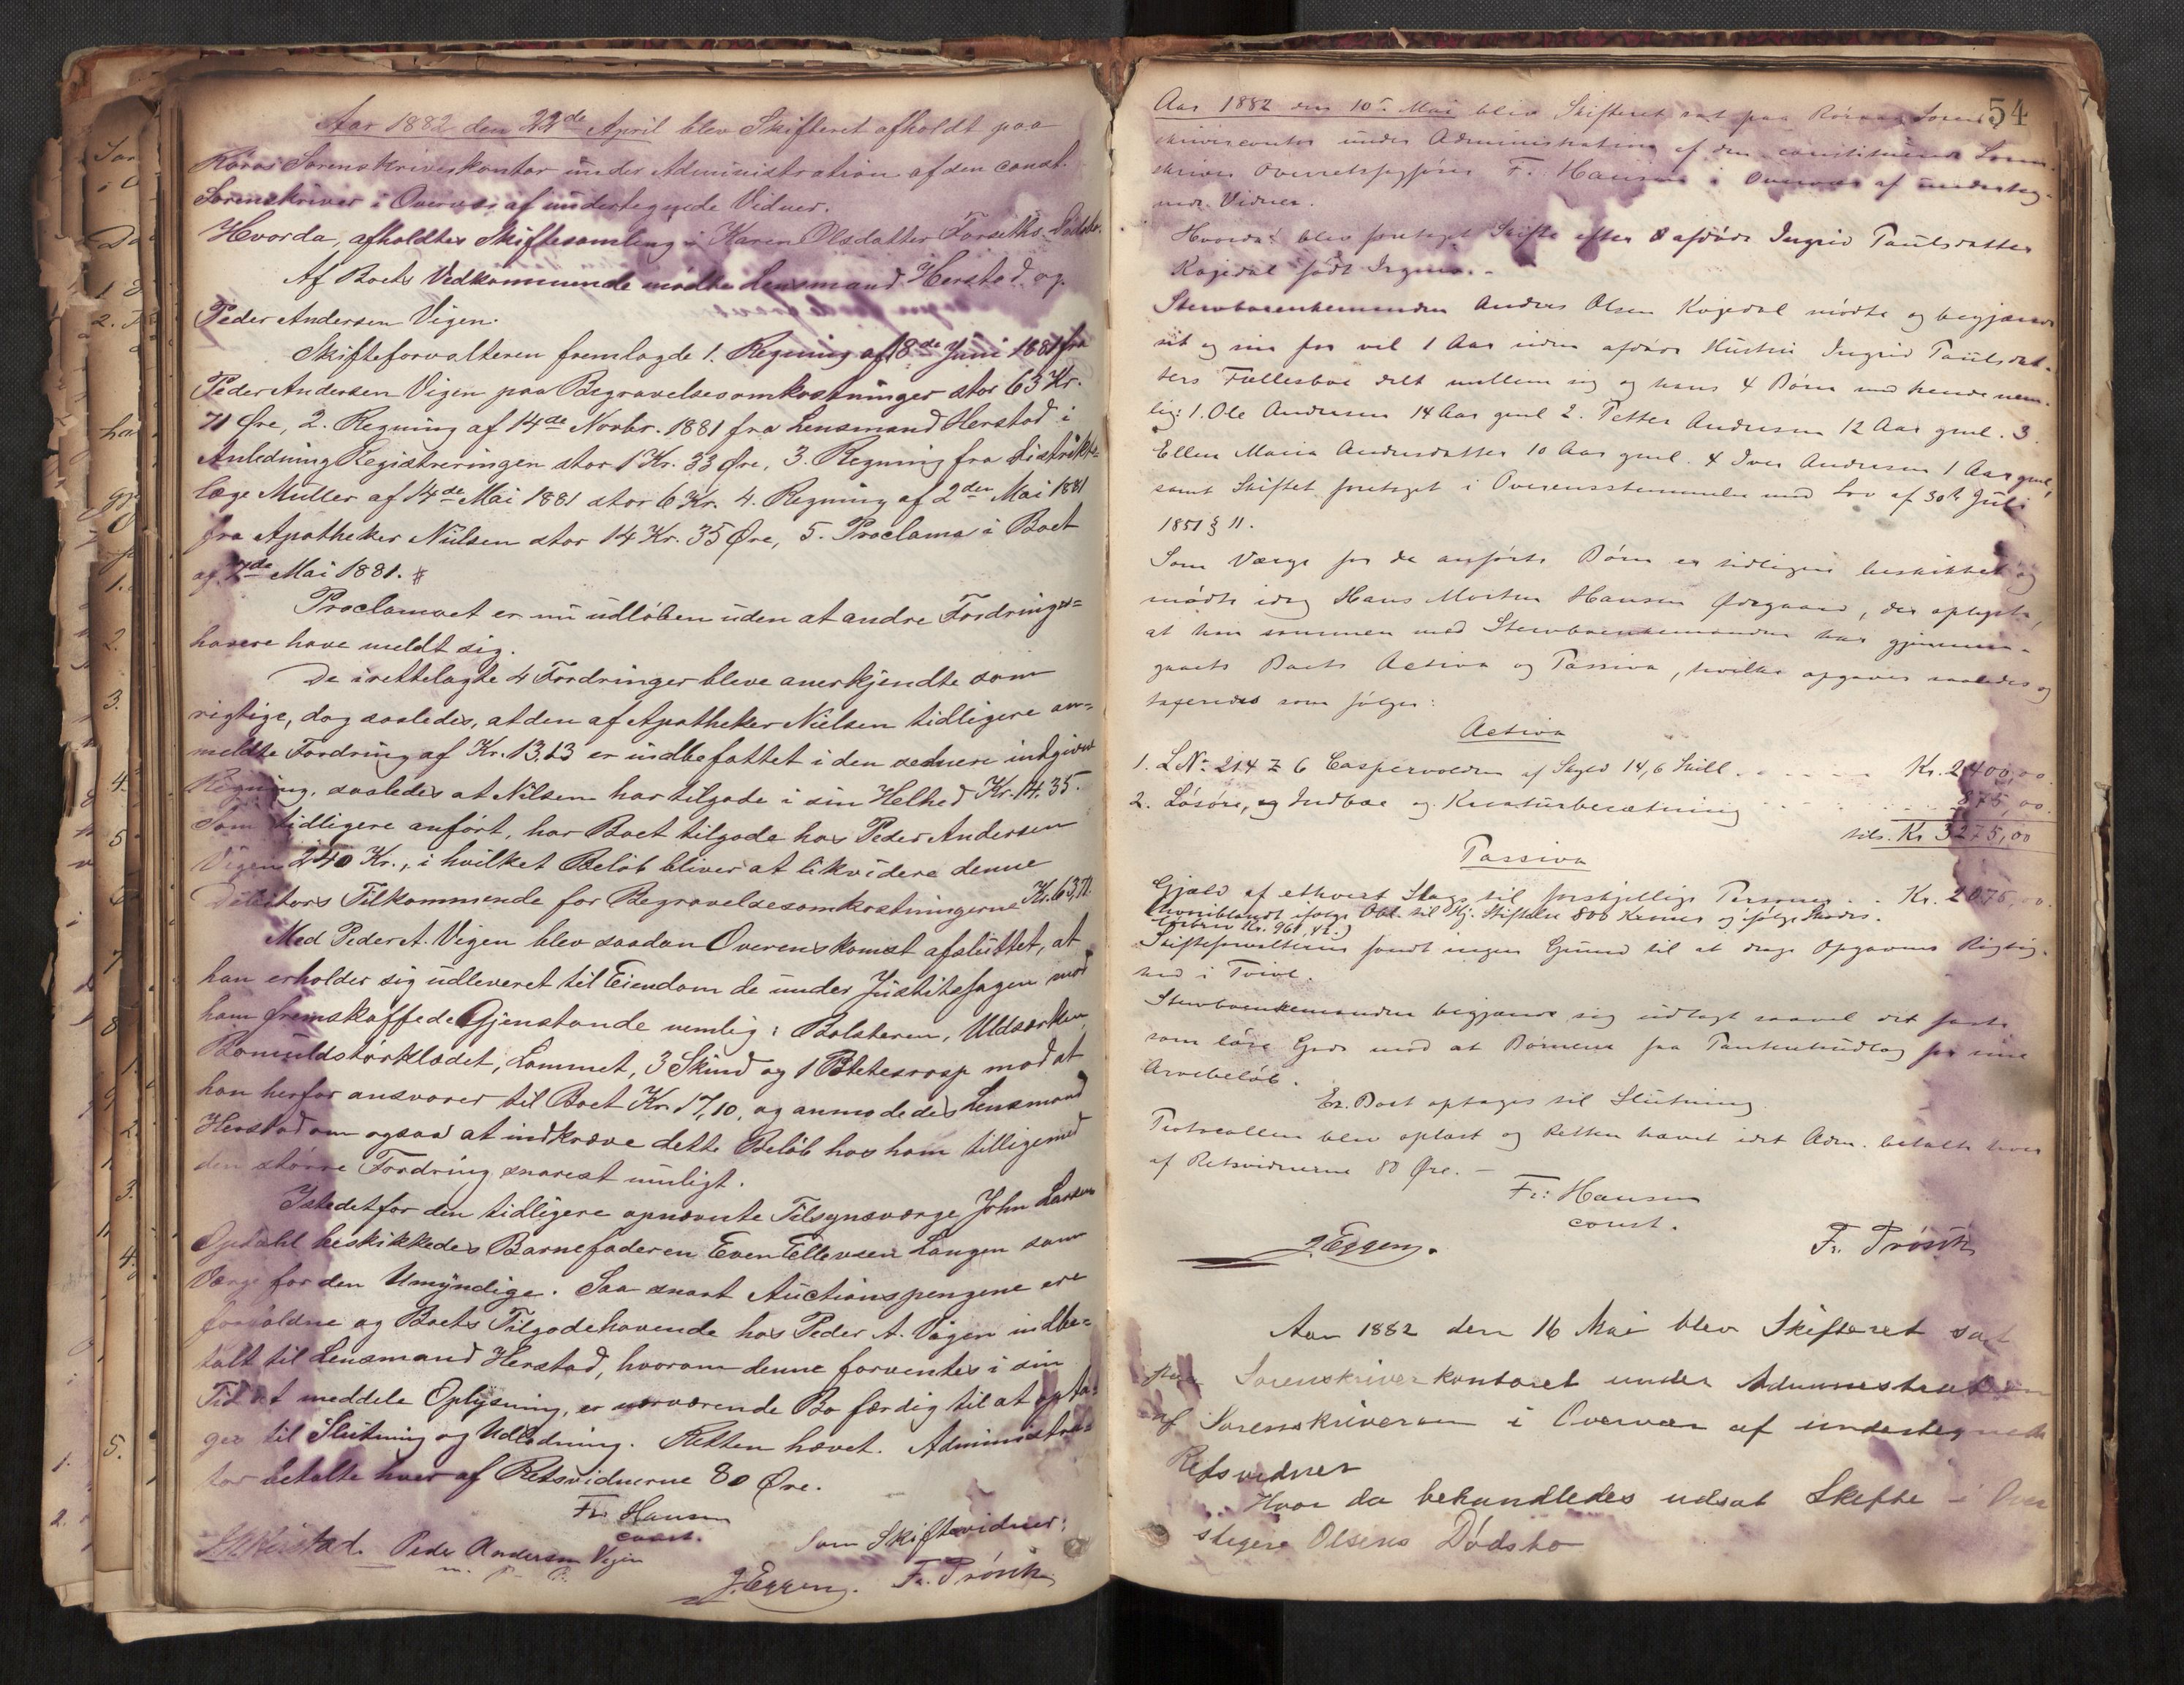 Aar 1882 den 22de April blev Skifteret afholdt paa
Röros Sorenskriverkontor under Administration af den const.
Sorenskriver i Overvær af undertegnede Vidner.
Hvorda, afholdtes Skiftesamling i Karen Olsdatter Forseths Dödsbo.
Af Boets Vedkommende mödte Lensmand Herstad og
Peder Andersen Vigen.
Skifteforvalteren fremlagde 1. Regning af 8de Juni 1881 fra
Peder Andersen Vigen paa Begravelsesomkostninger stor 63 Kr.
71 Øre, 2. Regning af 14de Novbr. 1881 fra Lensmand Herstad i
Anledning Registreringen stor 1 Kr. 33 Øre, 3. Regning fra Distrikts=
læge Müller af 14de Mai 1881 stor 6 Kr. 4. Regning af 2den Mai 1881
fra Apotheker Nielsen stor 14 Kr. 35 Øre, 5. Proclama i Boet
af 7de Mai 1881.
Proclamaet er nu udlöben uden at andre Fordrings=
havere have meldt sig.
De irettelagte 4 Fordringer bleve anerkjendte som
rigtige, dog saaledes, at den af Apotheker Nielsen tidligere an=
meldte Fordring af Kr. 13,13 er indbefattet i den senere indgivne
Regning, saaledes at Nilsen har tilgode i sin Helhed Kr. 14,35.
Som tidligere anfört, har Boet tilgode hos Peder Andersen
Vigen 240 Kr., i hvilket Belöb bliver at likvidere denne
Debitors Tilkommende for Begravelsesomkostningerne Kr. 63,71.
Med Peder A. Vigen blev saadan Overenskomst afsluttet, at
han erholder sig udleveret til Eiendom de under Justitssagen mod
ham fremskaffede Gjenstande nemlig: Bolsteren, Uldsærken,
Bomuldstörklædet, Lammet, 3 Skind og 1 mod at
han herfor ansvarer til Boet Kr. 17,10, og anmodedes Lensmand
Herstad om ogsaa at indkræve dette Belöb hos ham tilligemed
den större Fordring snarest muligt.
Istedetfor den tidligere opnævnte Tilsynsværge John Larsen
Opdahl beskikkedes Barnefaderen Even Ellevsen Langen som
Værge for den Umyndige. Saa snart Auctionspengene ere
forfaldne og Boets Tilgodehavende hos Peder A. Vigen indbe=
talt til Lensmand Herstad, hvorom denne forventes i sin
Tid at meddele Oplysning, er nærværende Bo færdig til at opta=
ges til Slutning og Udlodning. Retten hævet. Administra=
tor betalte hver af Retsvidnerne 80 Øre.
Fr. Hansen
const.
Som Skiftevidner:
Herstad. Peder Andersen Vigen
m. p. P.
J. Eggen. Fr. Prösch
54
Aar 1882 den 10de Mai blev Skifteret sat paa Röraas Soren
skrivercontor under Administration af den constituerede Soren
skriver Overretssagförer F. Hansen i Overvær af underteg-
nede Vidner.
Hvorda blev foretaget Skifte efter afdöde Ingrid Paulsdatter
Kojedal födt
Stervboenkemanden Anders Olsen Kojedal mödte og begjærede
sit og sin for vel 1 Aar siden afdöde Hustru Ingrid Paulsdat-
ters Fællesbo delt mellem sig og hans 4 Börn med hende nem-
lig: 1. Ole Andersen 14 Aar gml. 2. Petter Andersen 12 Aar gml. 3.
Ellen Maria Andersdatter 10 Aar gml. 4 Iver Andersen 1 Aar gml,
samt Skiftet foretaget i Overensstemmelse med Lov af 30te Juli
1851 § 11.
Som Værge for de anförte Börn er tidligere beskikket og
mödte idag Hans Morten Hansen Ødegaard, der oplyste,
at han sammen med Stervboenkemanden har gjennem-
gaaet Boets Activa og Passiva, hvilke opgaves saaledes og
taxeredes som fölger:
Activa
1. L No. 214 6 Caspervolden af Skyld 14,6 Skill. Kr. 2400,00.
2. Lösöre, og Indboe og Kreaturbesætning 875,00.
tils. Kr 3275,00
Passiva
Gjæld af ethvert Slags til forskjellige Personer. Kr. 2075,00.
(hvoriblandt ifölge Obl. til 800 Kroner og ifölge
Kr. 961,42.)
Skifteforvalteren fandt ingen Grund til at drage Opgavens Rigtig-
hed i Tvivl.
Stervboenkemanden begjærede sig udlagt saavel det faste
som löse Gods mod at Börnene faa Panteudlæg for sine
Arvebelöb.
Er. Boet optages til Slutning
Protocollen blev oplæst og Retten hævet idet Adm. betalte hver
af Retsvidnerne 80 Øre. –
Fr: Hansen
const.
J. Eggen. Fr. Prösch
Aar 1882 den 16 Mai blev Skifteret sat
paa Sorenskriverkontoret under Administration
af Sorenskriveren i Overvær af undertegnede
Retsvidner
Hvor da behandledes udsat Skifte i Over
stiger Olsens Dödsbo